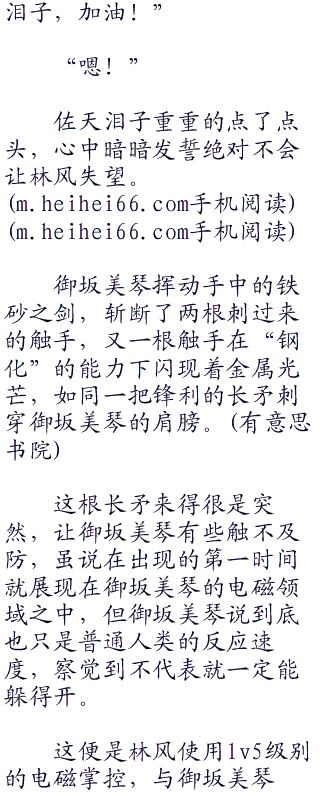 泪子，加油！”
“嗯！”
佐天泪子重重的点了点
头，心中暗暗发誓绝对不会
让林风失望。
(m.heihei66.com手机阅读)
(m.heihei66.com手机阅读)
御坂美琴挥动手中的铁
砂之剑，斩断了两根刺过来
的触手，又一根触手在“钢
化”的能力下闪现着金属光
芒，如同一把锋利的长矛刺
穿御坂美琴的肩膀。(有意思
书院)
这根长矛来得很是突
然，让御坂美琴有些触不及
防，虽说在出现的第一时间
就展现在御坂美琴的电磁领
域之中，但御坂美琴说到底
也只是普通人类的反应速
度，察觉到不代表就一定能
躲得开。
这便是林风使用lv5级别
的电磁掌控，与御坂美琴